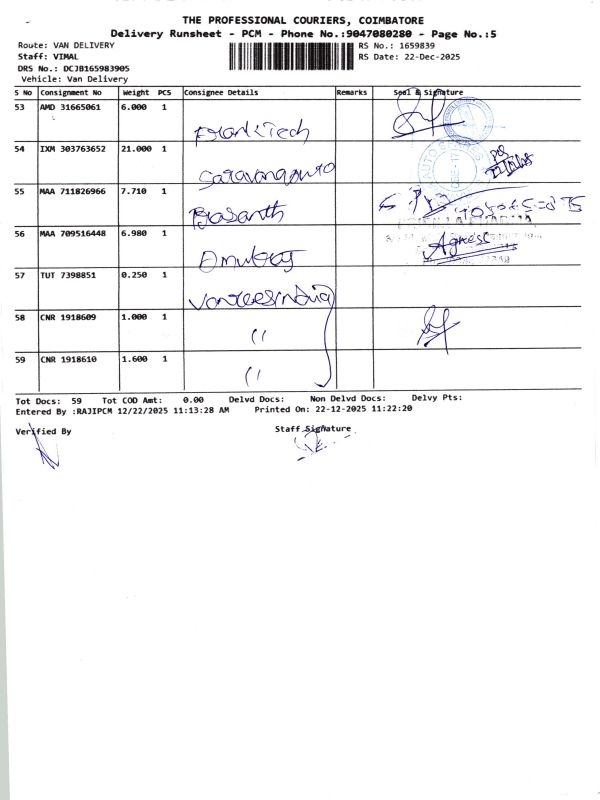 THE PROFESSIONAL COURIERS, COIMBATORE
Delivery Runsheet - PCM - Phone No.:9047080280 - Page No.:5
Route: VAN DELIVERY RS No.: 1659839
Staff: VIMAL RS Date: 22-Dec-2025
DRS No.: DCJB165983905
Vehicle: Van Delivery
S No Consignment No Weight PCS Consignee Details Remarks Seal & Signature
53 AMD 31665061 6.000 1
Frank Tech
54 IXM 303763652 21.000 1
55 MAA 711826966 7.710 1
Prasanth
56 MAA 709516448 6.980 1
Agness
57 TUT 7398851 0.250 1
58 CNR 1918609 1.000 1
"
59 CNR 1918610 1.600 1
"
Tot Docs: 59 Tot COD Amt: 0.00 Delvd Docs: Non Delvd Docs: Delvy Pts:
Entered By :RAJIPCM 12/22/2025 11:13:28 AM Printed On: 22-12-2025 11:22:20
Verified By Staff Signature